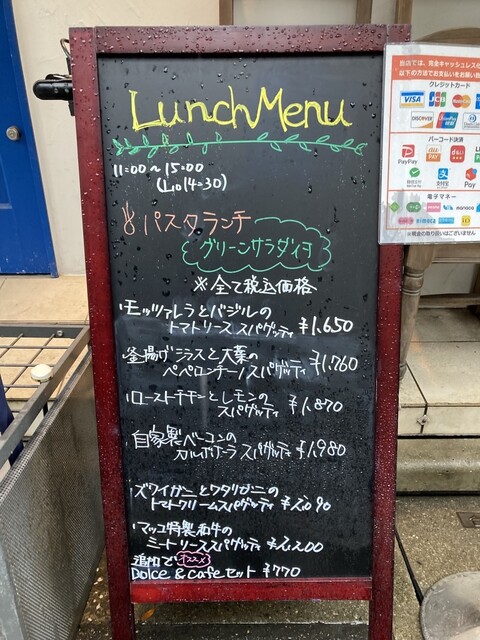 Lunch Menu
11:00~15:00
(Lo 14:30)
パスタランチ
グリーンサラダ付
※全て税込価格
・モッツァレラとバジルの
トマトソース スパゲッティ ¥1.650
・釜揚げシラスと大葉の
ペペロンチーノスパゲッティ ¥1.760
・ローストチキンとレモンの
スパゲッティ ¥1.870
・自家製ベーコンの
カルボナーラ スパゲッティ ¥1.980
・ズワイガニとワタリガニの
トマトクリームスパゲッティ ¥2.090
・マッユ特製和牛の
ミートソーススパゲッティ ¥2.200
追加で オススメ
Dolce & cafe セット ¥770
当店では、完全キャッシュレス
以下の方法でお支払いをお願い
クレジットカード
VISA JCB
DISCOVER
バーコード決済
PayPay au PAY d払い
電子マネー
nimoca iD
※現金の取り扱いはございません